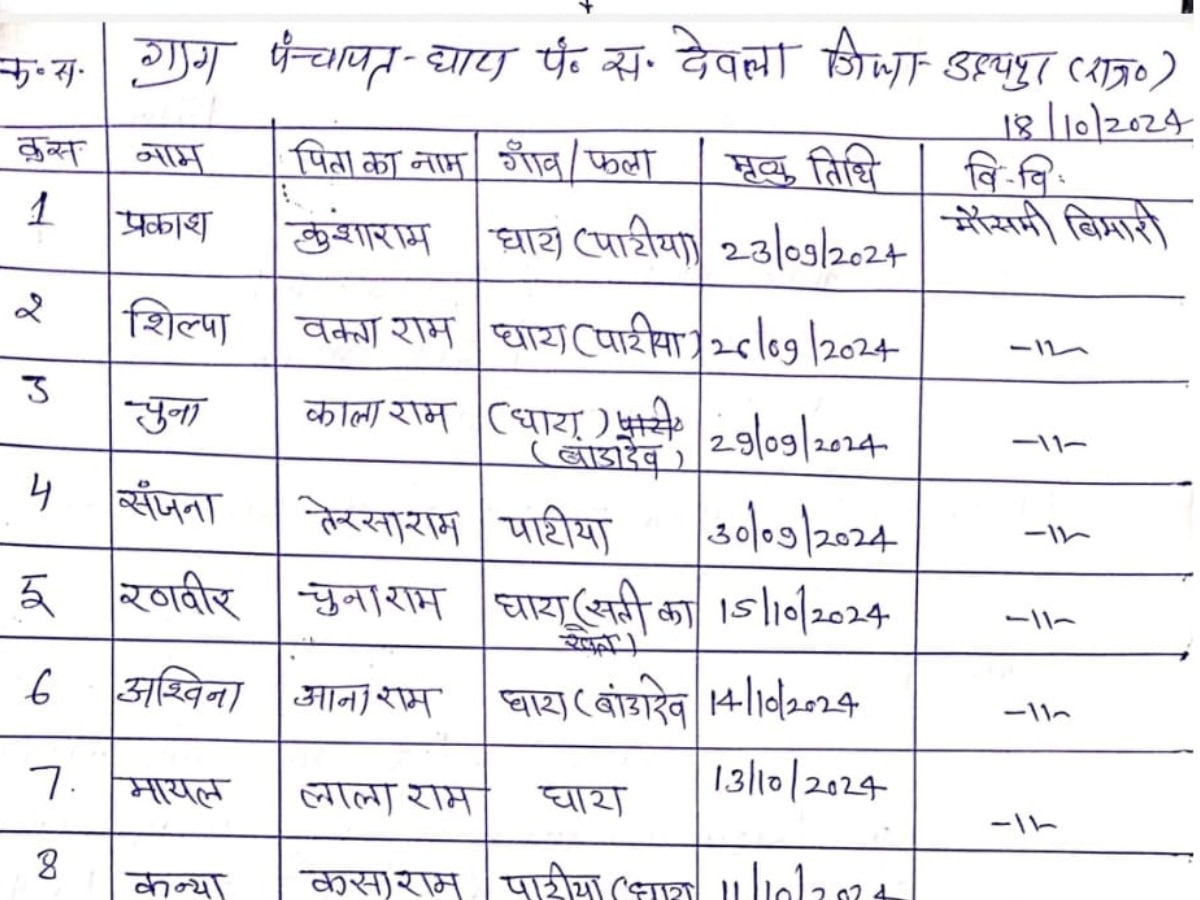 क्र.स. ग्राम पंचायत-घारा पं. स. देवला जिला उदयपुर (राज०)
18/10/2024
क्रस नाम पिता का नाम गाँव/फला मृत्यु तिथि वि.वि.
1 प्रकाश कुंशाराम घारा (पाटीया) 23/09/2024 मौसमी बिमारी
२ शिल्पा वक्ता राम घारा (पाटीया) 26/09/2024 -11-
3 चुना काला राम (घारा) 29/09/2024 -11-
(बांडादेव)
4 संजना तेरसाराम पाटीया 30/09/2024 -11-
5 रणवीर चुनाराम घारा (सती का 15/10/2024 -11-
खेत)
6 अश्विना आना राम घारा (बांडादेव 14/10/2024 -11-
7. मायल लाला राम घारा 13/10/2024 -11-
8 कन्या कसाराम पाटीया (घारा 11/10/2024